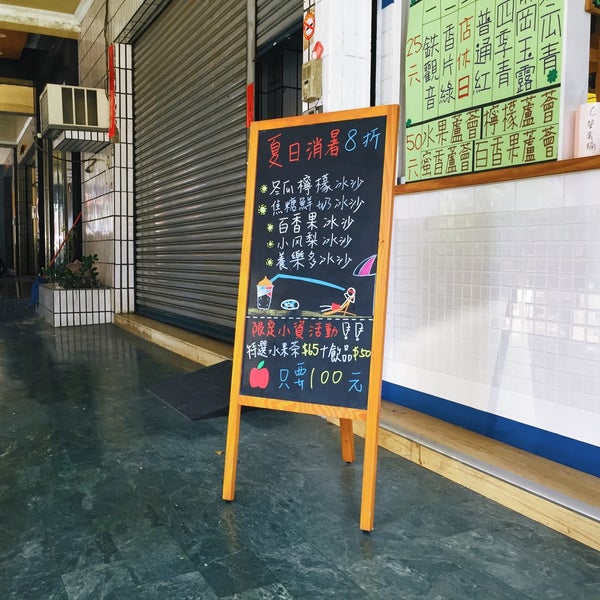 夏日消暑8折
冬瓜檸檬冰沙
焦糖鮮奶冰沙
百香果冰沙
小凤梨冰沙
養樂多冰沙
限定小資活動!!
特選水果茶$65+飲品$50
只要100元
25元
鉄觀音
香片綠
店休日
普通紅
四季青
岡玉露
50元
水果蘆薈
檸檬蘆薈
蜜香蘆薈
百香果蘆薈